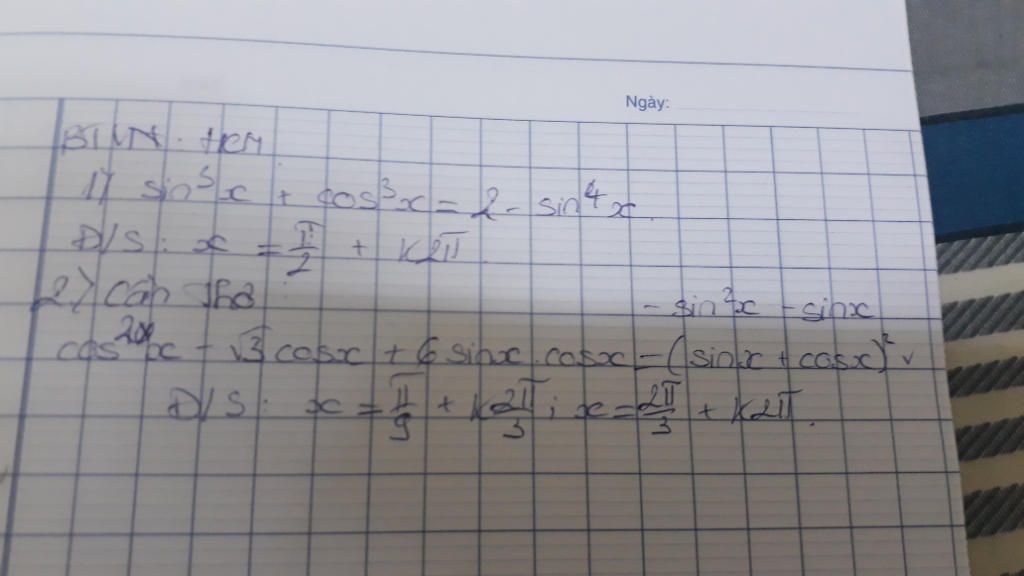 Ngày:
BTVN. HCM
1) sin⁵x + cos³x = 2 - sin⁴x.
Đ/S: x = π/2 + K2π.
2) Cần Thơ:
- sin²x - sinx
cos²x - √3 cosx + 6 sinx.cosx = (sinx + cosx)²
Đ/S: x = π/9 + K2π/3; x = 2π/3 + K2π.